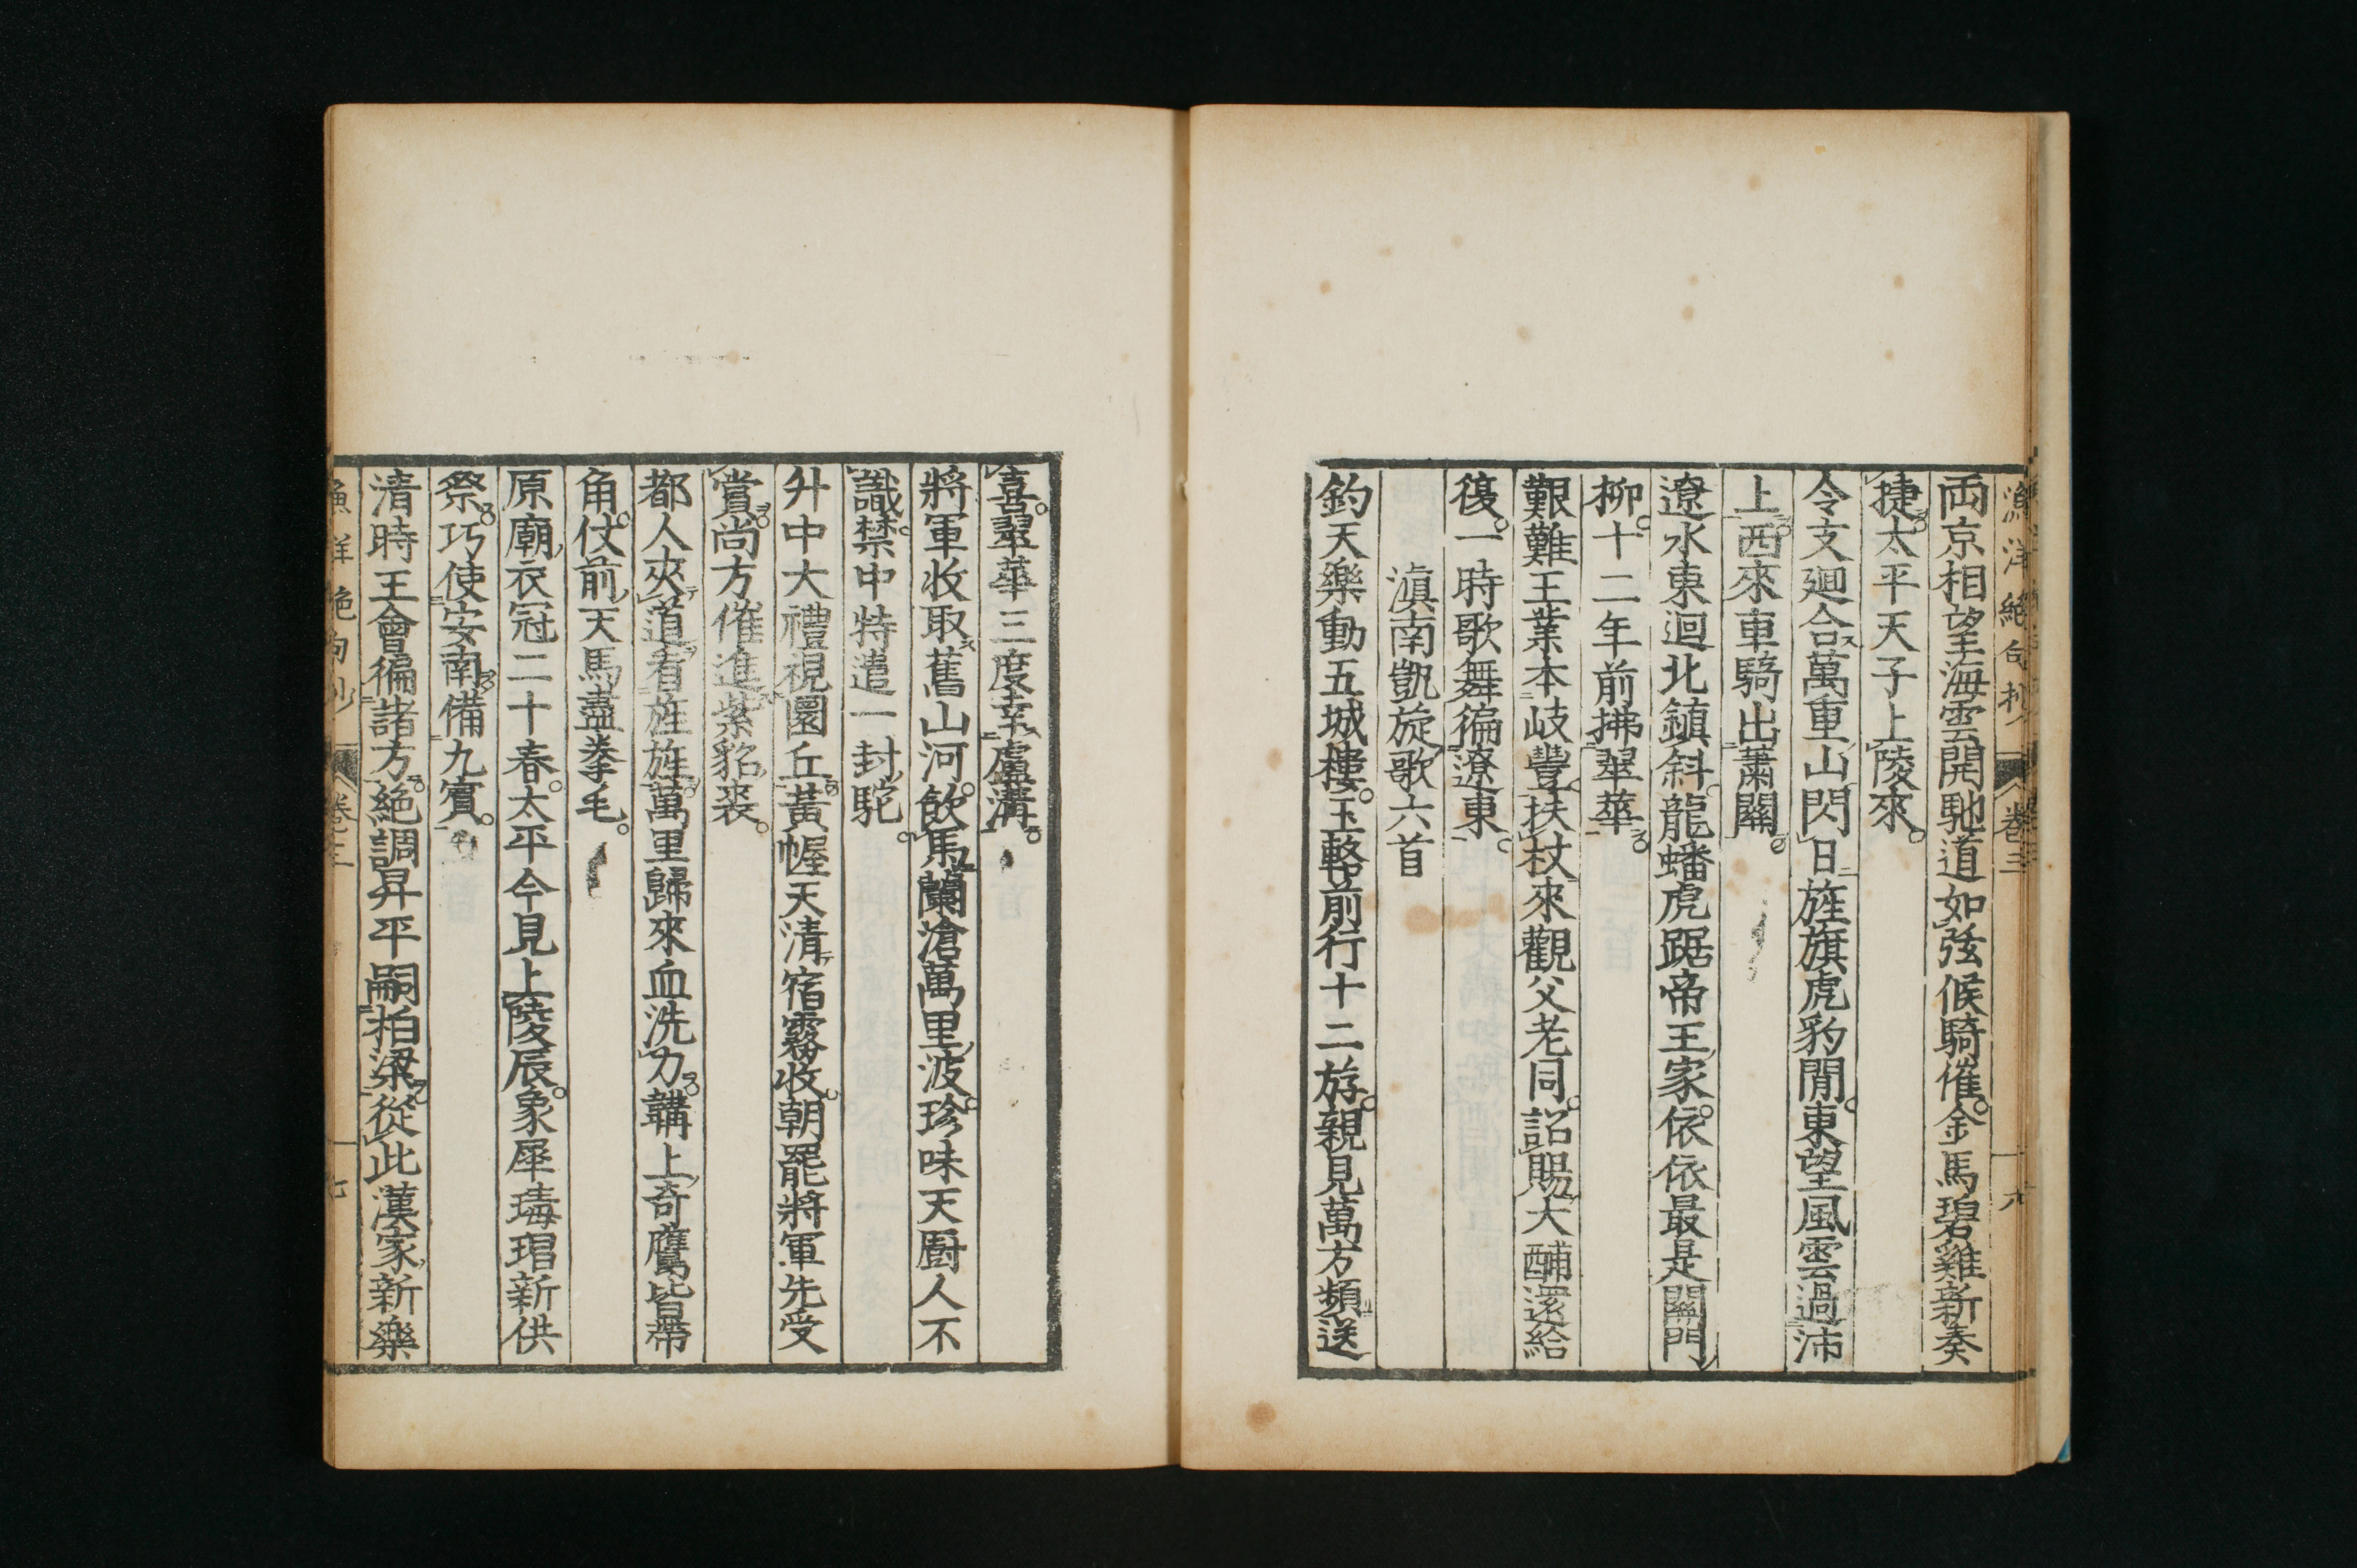 漁洋絶句抄 卷三 六
両京相望海雲開馳道如弦候騎催金馬碧雞新奏
捷太平天子上陵來
令支廻合萬重山閃日旌旗虎豹閒東望風雲過沛
上西來車騎出蕭關
遼水東迴北鎮斜龍蟠虎踞帝王家依依最是關門
柳十二年前拂翠華
艱難王業本岐豐扶杖來觀父老同詔賜大酺還給
復一時歌舞徧遼東
滇南凱旋歌六首
鈞天樂動五城樓玉輅前行十二斿親見萬方頻送
喜翠華三度幸盧溝
將軍收取舊山河飲馬蘭滄萬里波珍味天厨人不
識禁中特遣一封駝
升中大禮視圜丘黃幄天清宿霧收朝罷將軍先受
賞尚方催進紫貂裘
都人夾道看旌旄萬里歸來血洗刀鞲上奇鷹皆帶
角仗前天馬盡拳毛
原廟衣冠二十春太平今見上陵辰象犀瑇瑁新供
祭巧使安南備九賓
清時王會徧諸方絶調昇平嗣柏梁從此漢家新樂
漁洋絶句抄 卷三 七